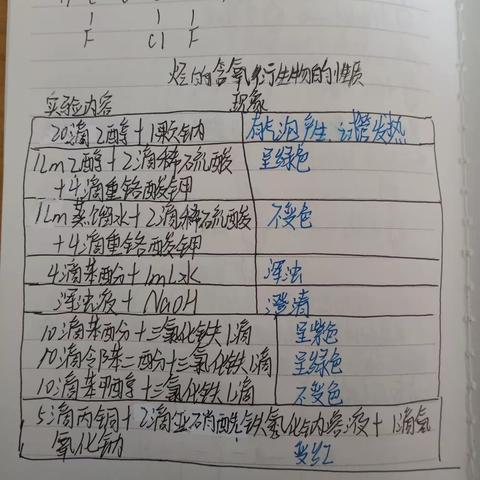 F Cl F
烃的含氧衍生物的性质
实验内容 现象
20滴乙醇+1颗钠 有气泡产生,试管发热
1Lm乙醇+2滴稀硫酸 呈绿色
+4滴重铬酸钾
1Lm蒸馏水+2滴稀硫酸 不变色
+4滴重铬酸钾
4滴苯酚+1mL水 浑浊
浑浊液+NaOH 澄清
10滴苯酚+三氯化铁1滴 呈紫色
10滴邻苯二酚+三氯化铁1滴 呈绿色
10滴苯甲醇+三氯化铁1滴 不变色
5滴丙铜+2滴亚硝酰铁氰化钠溶液+1滴氢
氧化钠 变红